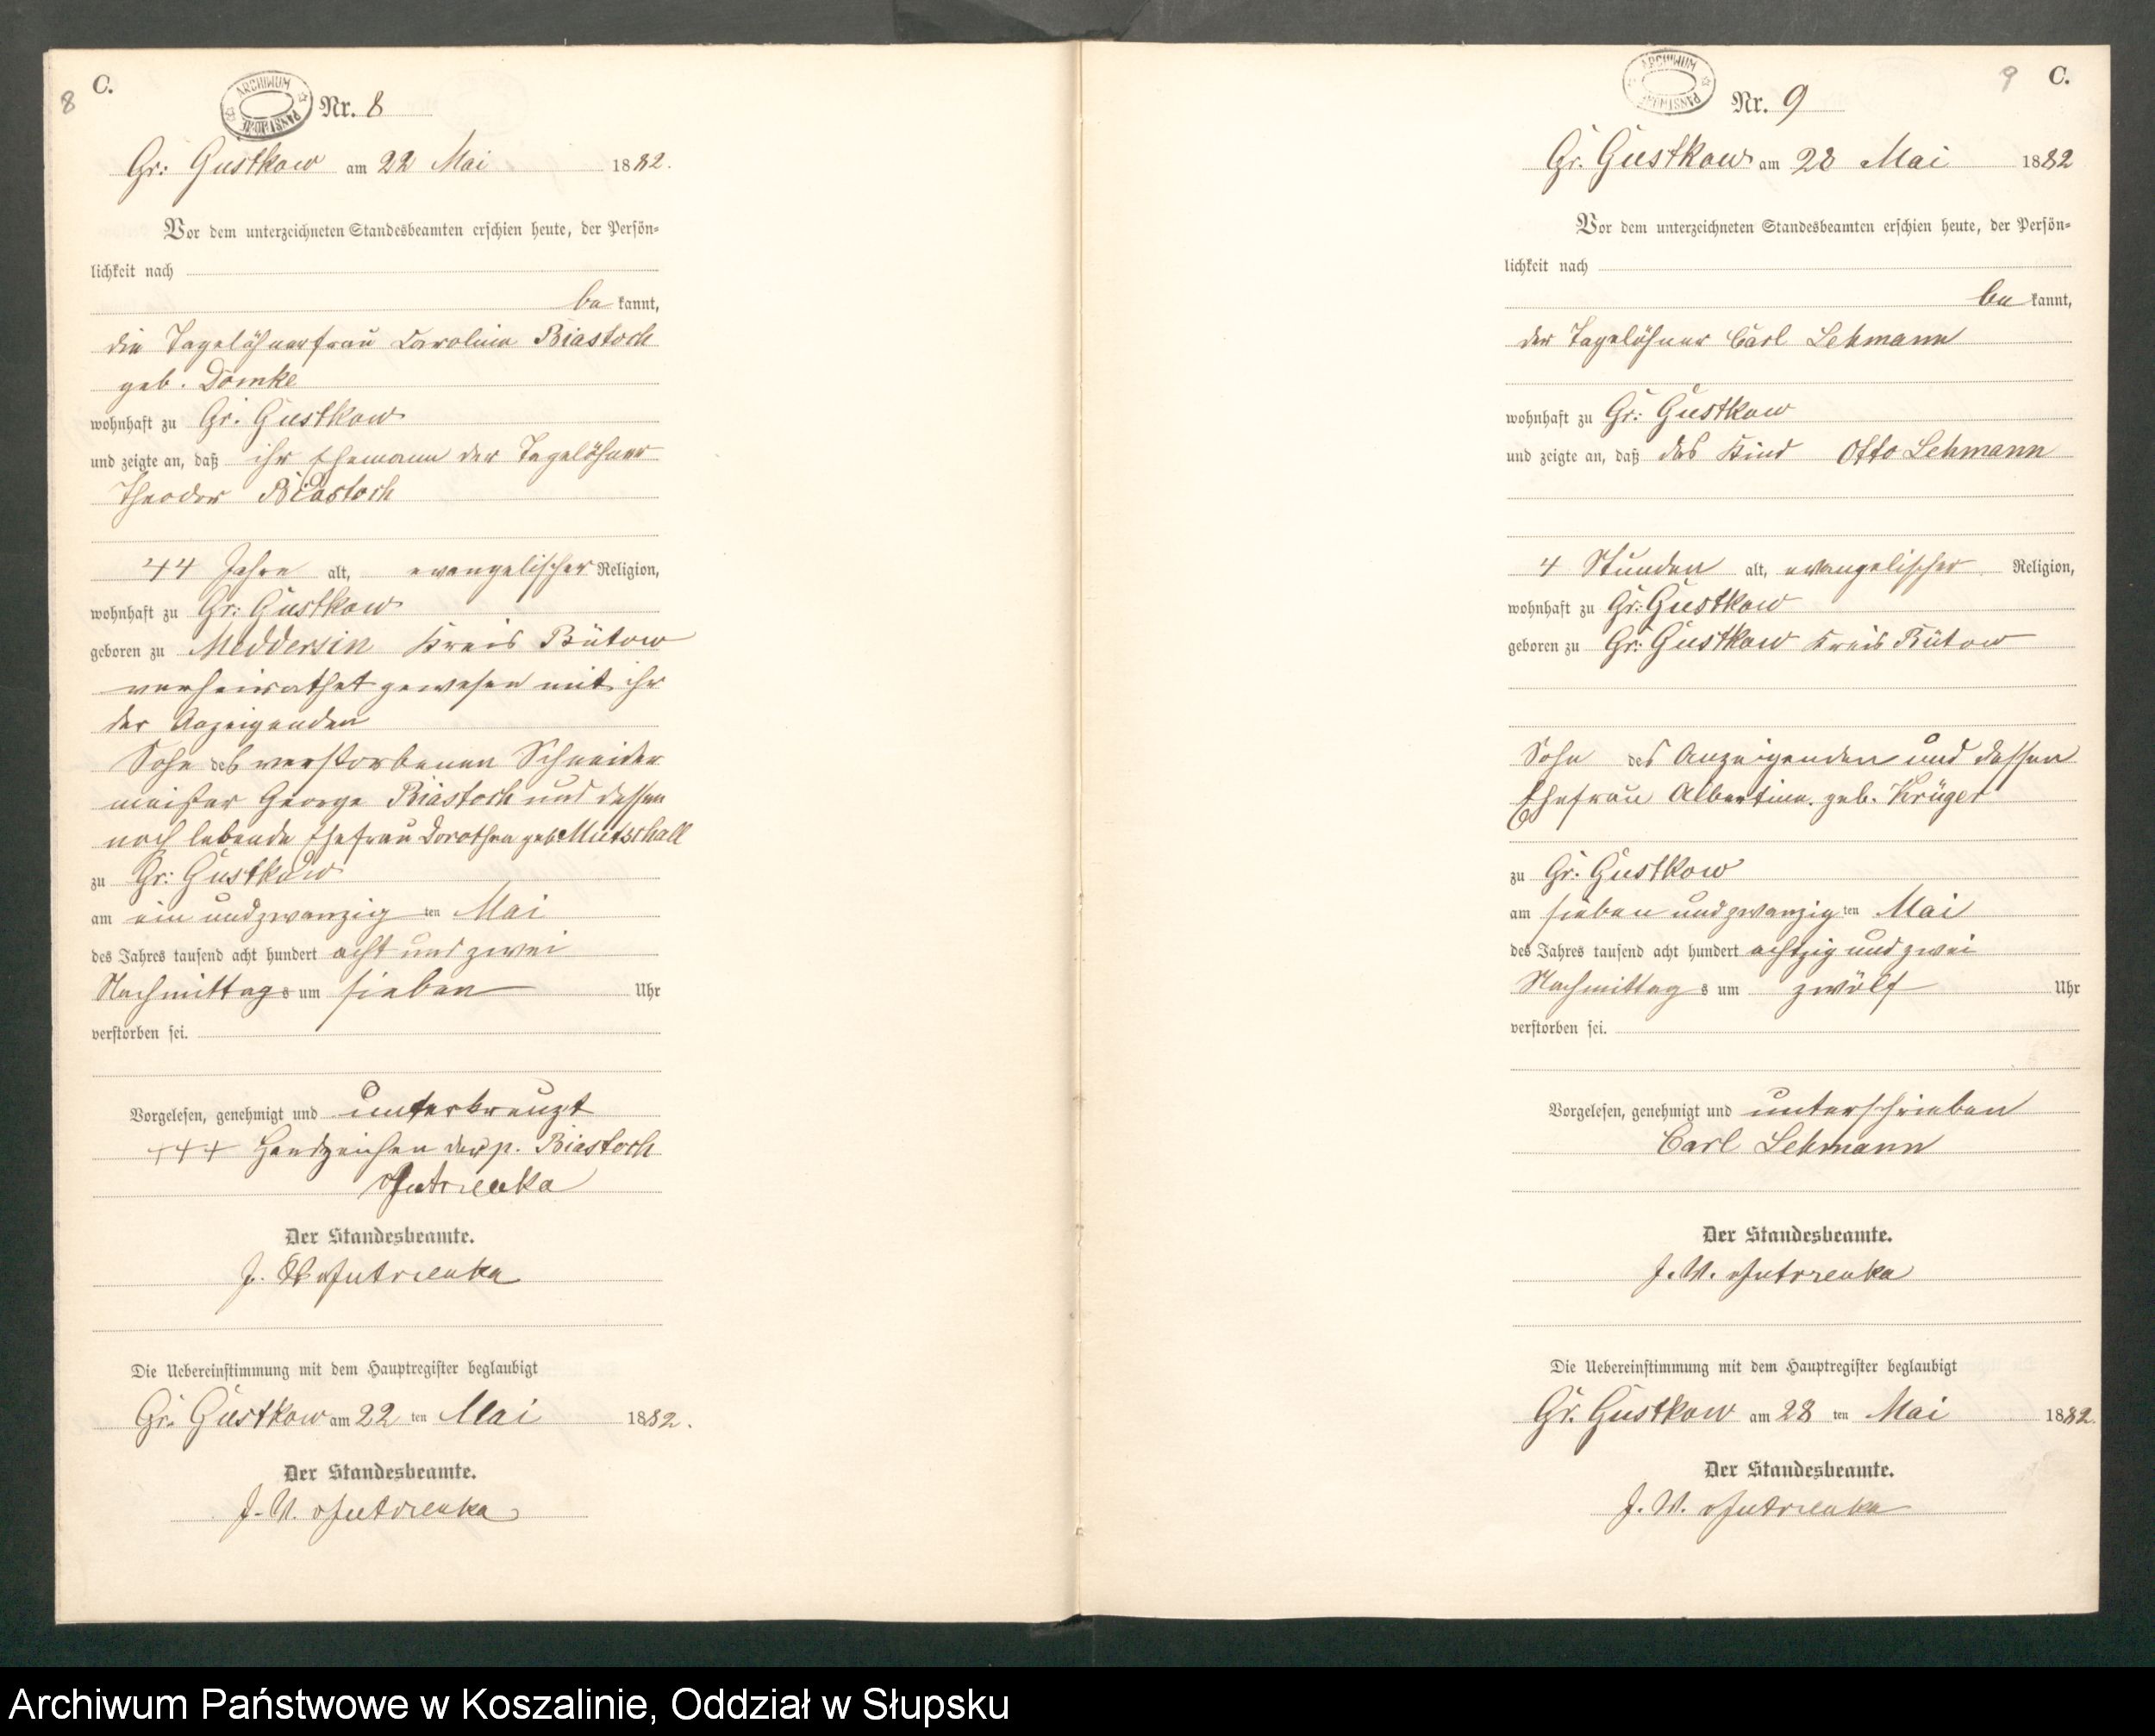 8
C.
ARCHIWUM PAŃSTWOWE
Nr. 8
Gr: Gustkow am 22 Mai 1882.
Vor dem unterzeichneten Standesbeamten erschien heute, der Persön-
lichkeit nach
be kannt,
die Tagelöhnerfrau Caroline Biastoch
geb. Domke
wohnhaft zu Gr. Gustkow
und zeigte an, daß ihr Ehemann der Tagelöhner
Theodor Biastoch
44 Jahre alt, evangelischer Religion,
wohnhaft zu Gr: Gustkow
geboren zu Meddersin Kreis Bütow
verheirathet gewesen mit ihr
der Anzeigenden
Sohn des verstorbenen Schneider
meister George Biastoch und dessen
noch lebende Ehefrau Dorothea geb. Mutschall
zu Gr: Gustkow
am ein und zwanzig ten Mai
des Jahres tausend acht hundert acht und zwei
Nachmittags um sieben Uhr
verstorben sei.
Vorgelesen, genehmigt und unterkreuzt
+++ Handzeichen der p. Biastoch
Jutrzenka
Der Standesbeamte.
J. W. Jutrzenka
Die Uebereinstimmung mit dem Hauptregister beglaubigt
Gr. Gustkow am 22 ten Mai 1882.
Der Standesbeamte.
J. W. Jutrzenka
9
C.
ARCHIWUM PAŃSTWOWE
Nr. 9
Gr. Gustkow am 28 Mai 1882
Vor dem unterzeichneten Standesbeamten erschien heute, der Persön-
lichkeit nach
be kannt,
der Tagelöhner Carl Lehmann
wohnhaft zu Gr: Gustkow
und zeigte an, daß das Kind Otto Lehmann
4 Stunden alt, evangelischer Religion,
wohnhaft zu Gr: Gustkow
geboren zu Gr: Gustkow Kreis Bütow
Sohn des Anzeigenden und dessen
Ehefrau Albertine geb. Krüger
zu Gr. Gustkow
am sieben und zwanzig ten Mai
des Jahres tausend acht hundert achtzig und zwei
Nachmittag s um zwölf Uhr
verstorben sei.
Vorgelesen, genehmigt und unterschrieben
Carl Lehmann
Der Standesbeamte.
J. W. Jutrzenka
Die Uebereinstimmung mit dem Hauptregister beglaubigt
Gr. Gustkow am 28 ten Mai 1882.
Der Standesbeamte.
J. W. Jutrzenka
Archiwum Państwowe w Koszalinie, Oddział w Słupsku